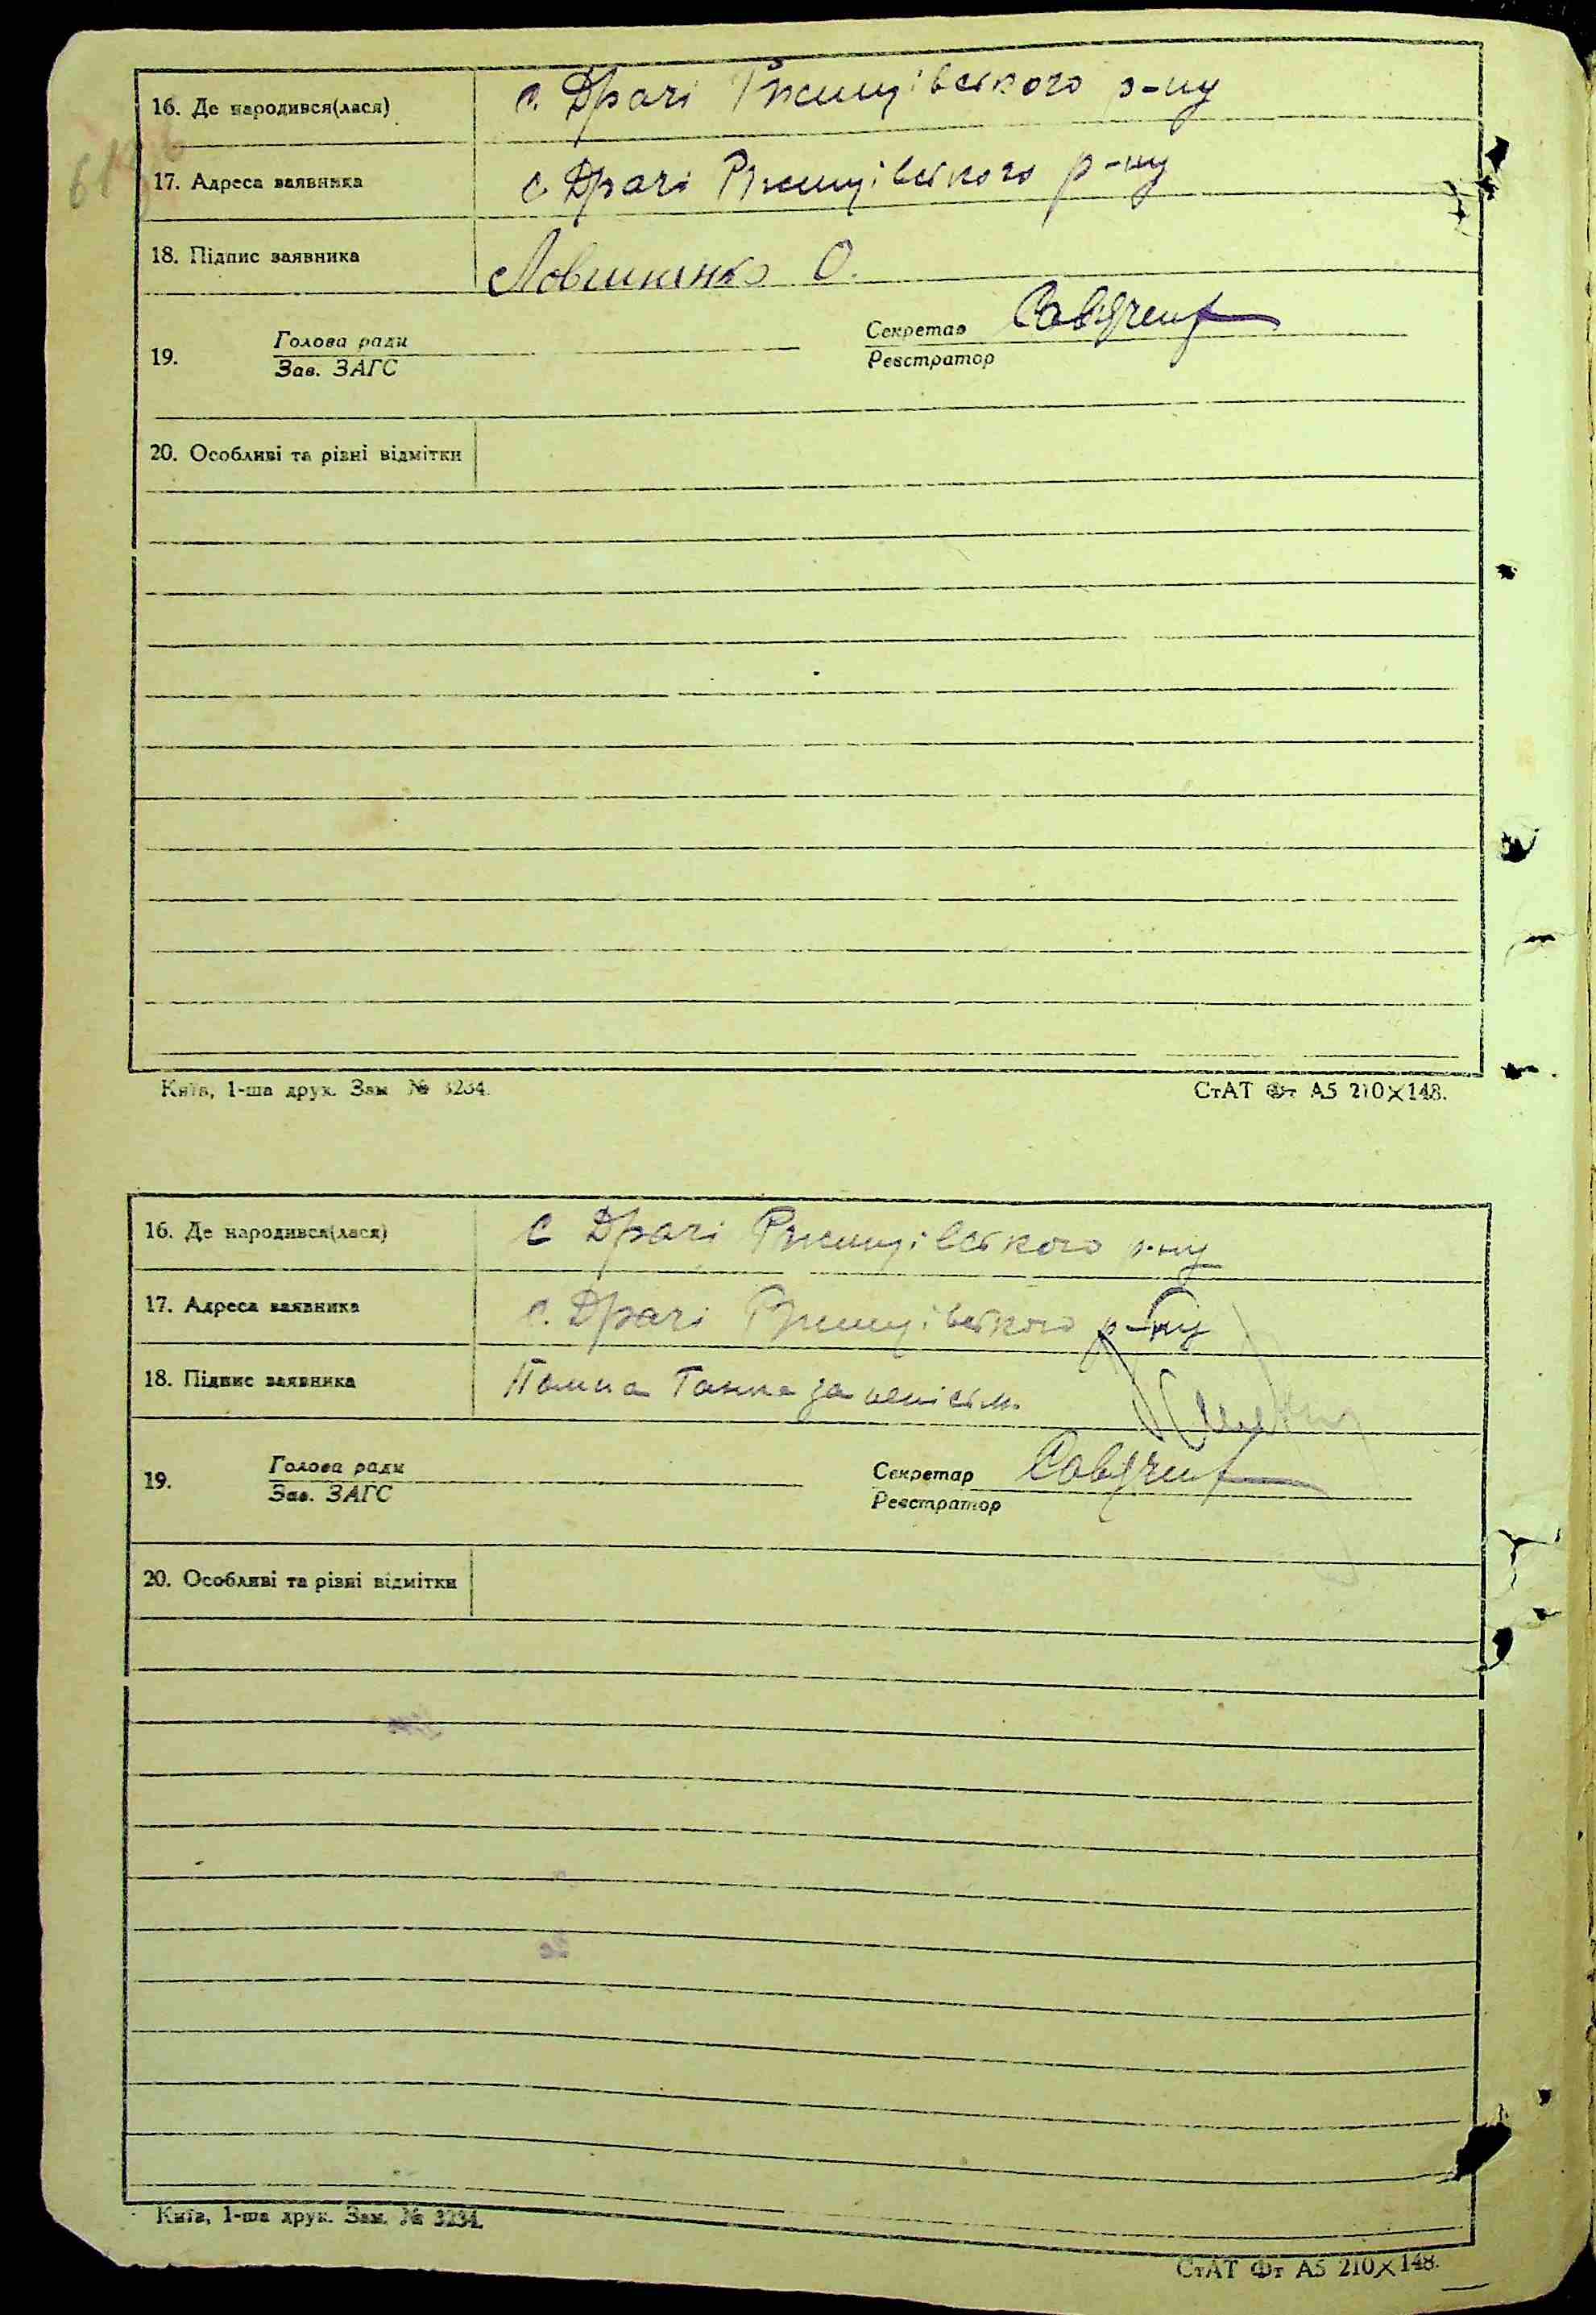 16. Де народився(лася) с. Драчі Ржищівського р-ну
17. Адреса заявника с. Драчі Ржищівського р-ну
18. Підпис заявника О.
19. Голова ради Секретар
Зав. ЗАГС Реєстратор
20. Особливі та різні відмітки
Київ, 1-ша друк. Зам. № 3234. СтАТ Фт А5 210×148.
16. Де народився(лася) с Драчі Ржищівського р-ну
17. Адреса заявника с. Драчі Ржищівського р-ну
18. Підпис заявника Ганна за неписьм.
19. Голова ради Секретар
Зав. ЗАГС Реєстратор
20. Особливі та різні відмітки
Київ, 1-ша друк. Зам. № 3234.
СтАТ Фт А5 210×148.